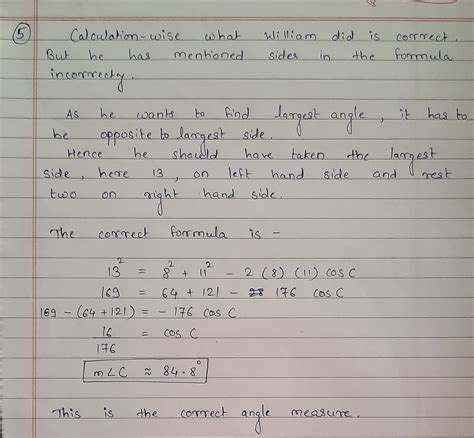 5 Calculation-wise what William did is correct.
But he has mentioned sides in the formula
incorrecty.
As he wants to find largest angle, it has to
be opposite to largest side.
Hence he should have taken the largest
side, here 13, on left hand side and rest
two on right hand side.
The correct formula is -
13² = 8² + 11² - 2 (8) (11) cos C
169 = 64 + 121 - 176 cos C
169 - (64 + 121) = - 176 cos C
16/176 = cos C
m∠C ≈ 84.8°
This is the correct angle measure.